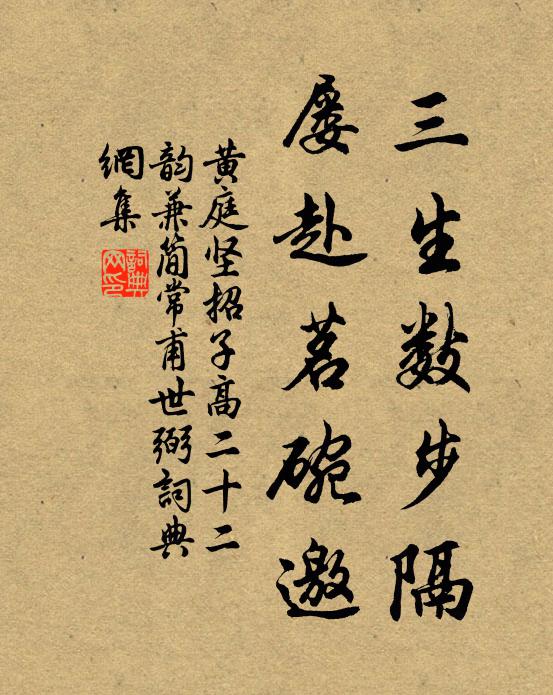 三生数步隔
屡赴茗碗邀
黄庭坚招子高二十二
韵兼简常甫世弼词典
網集
詞典网印